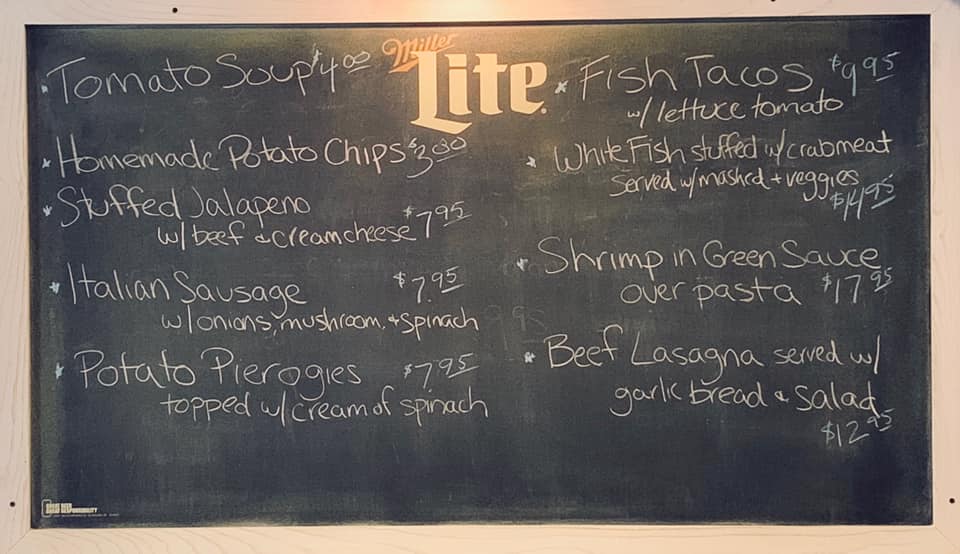 Tomato Soup $4.00
* Homemade Potato Chips $3.00
* Stuffed Jalapeno
w/ beef & creamcheese $7.95
* Italian Sausage $7.95
w/ onions, mushroom, + spinach
* Potato Pierogies $7.95
topped w/ cream of spinach
Miller
Lite
* Fish Tacos $9.95
w/ lettuce tomato
* White Fish stuffed w/ crabmeat
Served w/ mashed + veggies
$14.95
* Shrimp in Green Sauce
over pasta $17.95
* Beef Lasagna served w/
garlic bread & Salad
$12.95
GREAT BEER
GREAT RESPONSIBILITY